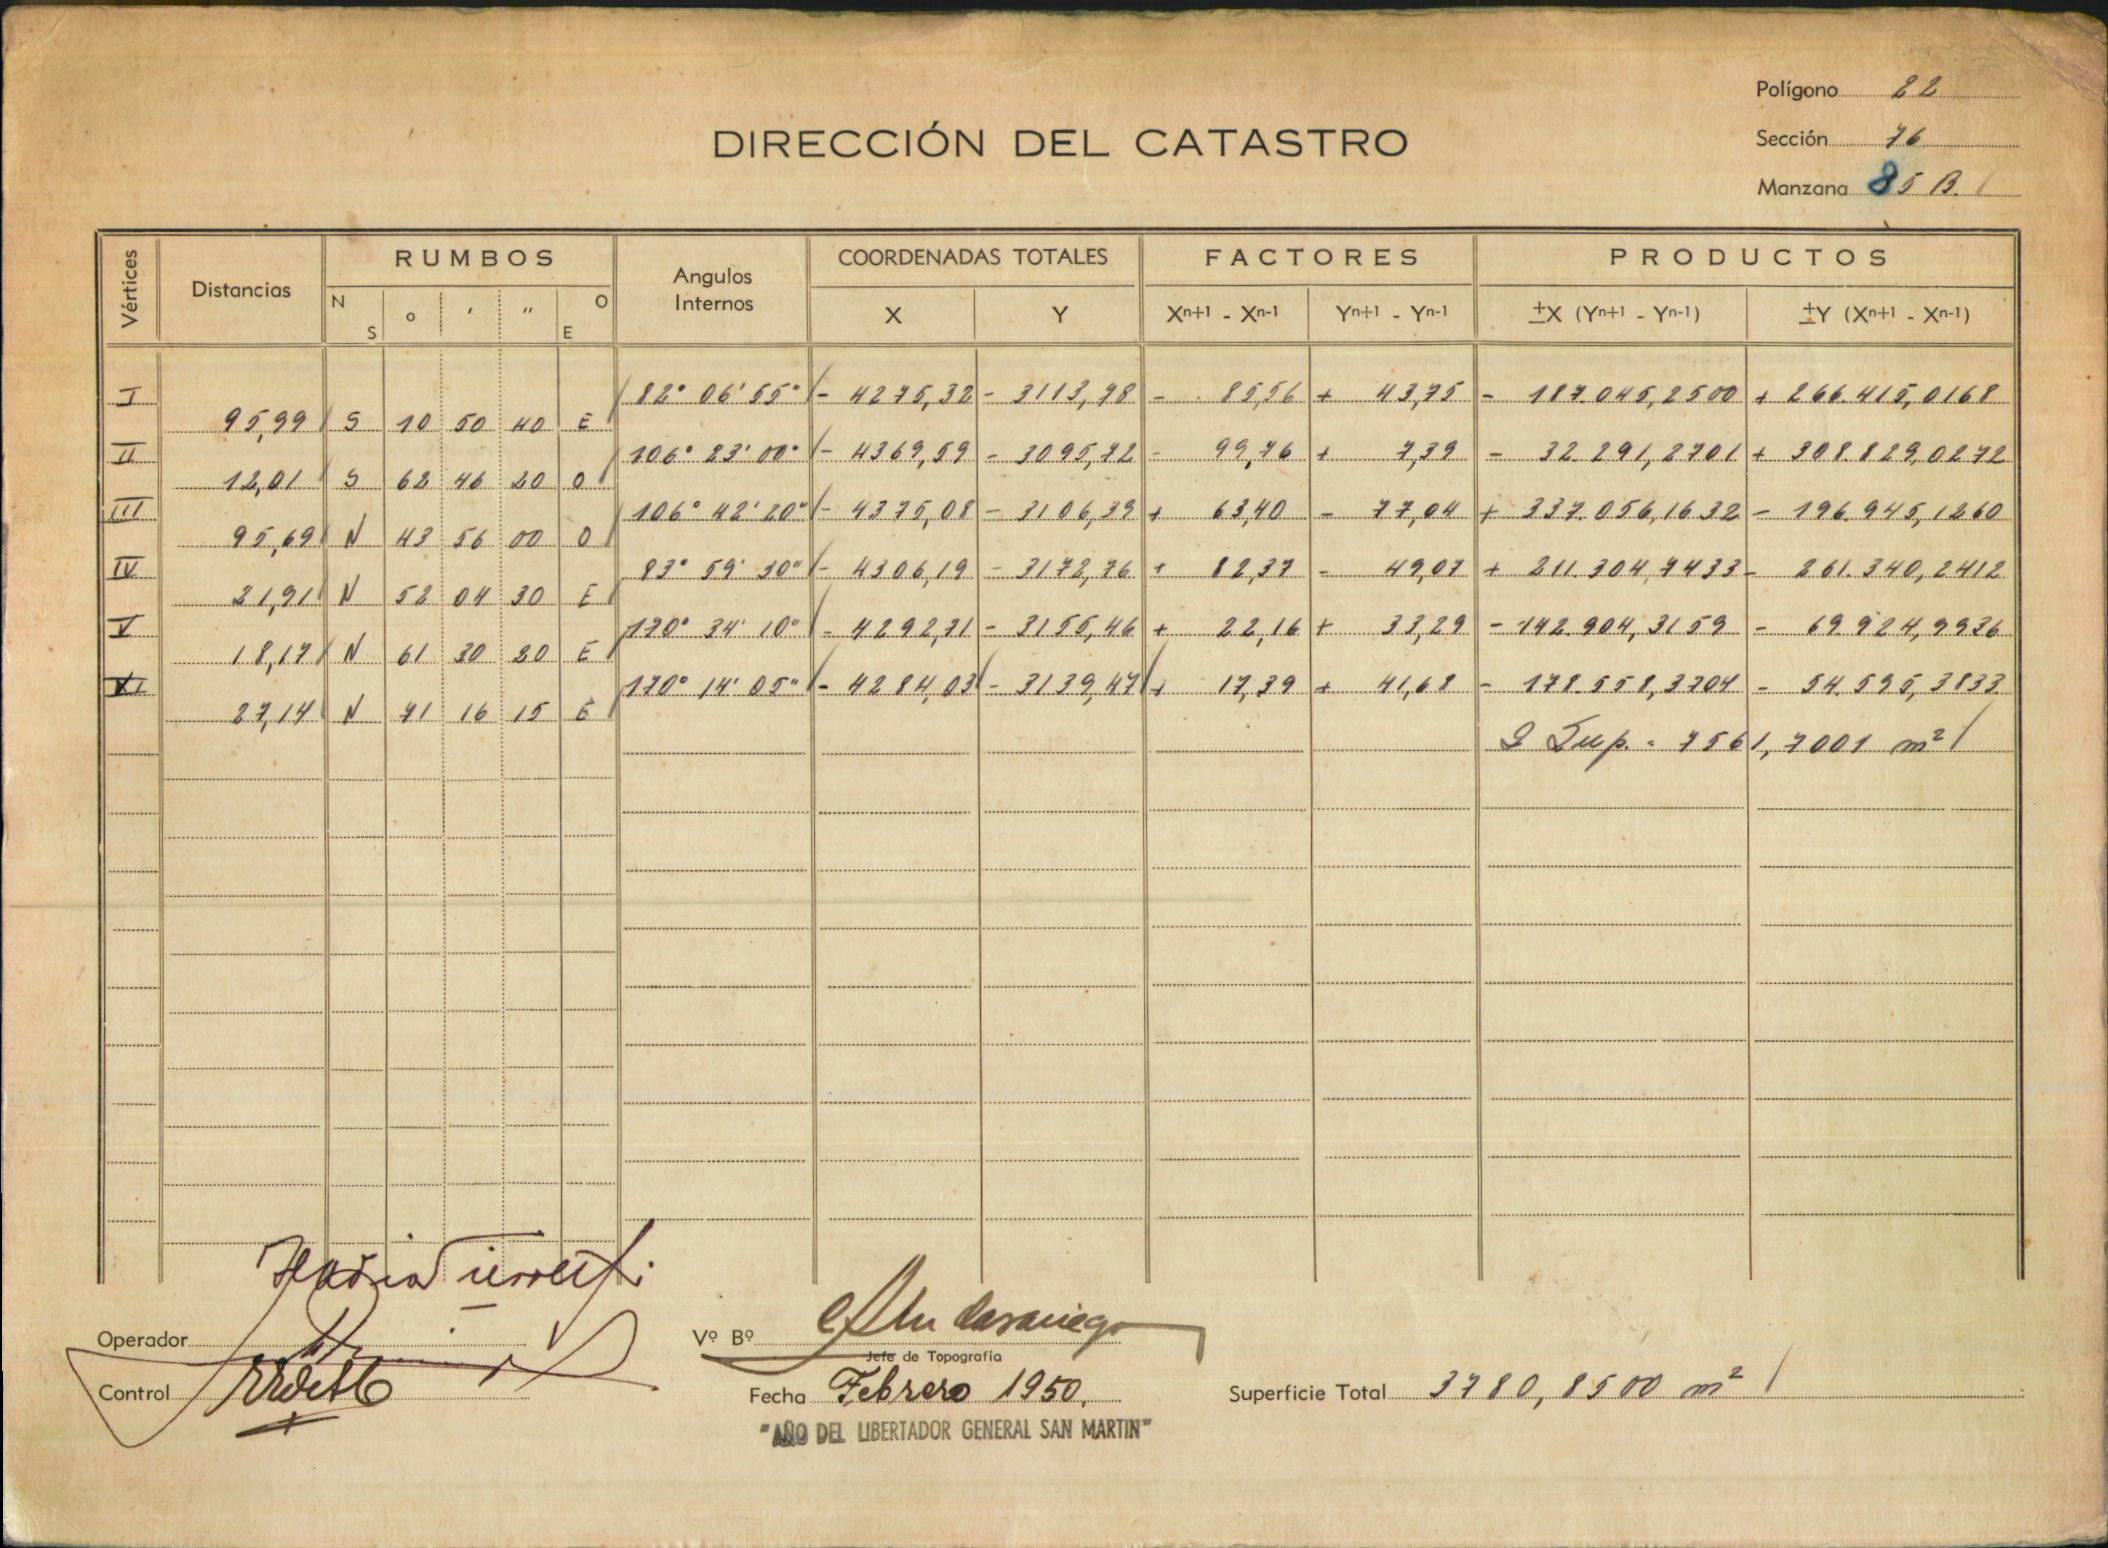 Polígono 22
DIRECCIÓN DEL CATASTRO
Sección 76
Manzana 85 B.
Vértices Distancias RUMBOS Angulos Internos COORDENADAS TOTALES FACTORES PRODUCTOS
N S o ' " O E X Y Xn+1 - Xn-1 Yn+1 - Yn-1 ±X (Yn+1 - Yn-1) ±Y (Xn+1 - Xn-1)
I 82° 06' 55" - 4275,32 - 3113,78 - 85,56 + 43,75 - 187.045,2500 + 266.415,0168
95,99 S 10 50 40 E
II 106° 23' 00" - 4369,59 - 3095,72 - 99,76 + 7,39 - 32.291,2701 + 308.829,0272
12,01 S 62 46 20 O
III 106° 42' 20" - 4375,08 - 3106,39 + 63,40 - 77,04 + 337.056,1632 - 196.945,1260
95,69 N 43 56 00 O
IV 83° 59' 30" - 4306,19 - 3172,76 + 82,37 - 49,07 + 211.304,7433 - 261.340,2412
21,91 N 52 04 30 E
V 170° 34' 10" - 4292,71 - 3155,46 + 22,16 + 33,29 - 142.904,3159 - 69.924,9936
18,17 N 61 30 20 E
VI 170° 14' 05" - 4284,03 - 3139,47 + 17,39 + 41,68 - 178.558,3704 - 54.595,3833
27,14 N 71 16 15 E
2 Sup. = 7561,7001 m²
Operador
Vº Bº
Jefe de Topografía
Control
Fecha Febrero 1950,
Superficie Total 3780,8500 m²
"AÑO DEL LIBERTADOR GENERAL SAN MARTIN"